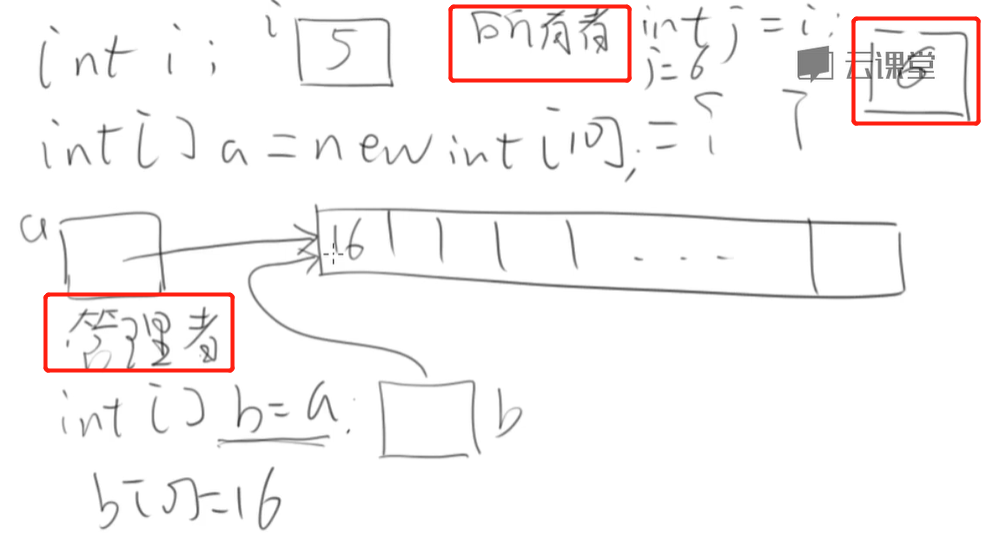 int i; i 5 所有者 int j = i;
j=6 6 云课堂
int[] a = new int[10]; = i j
a 16 ...
管理者
int[] b = a; b
b[0]=16